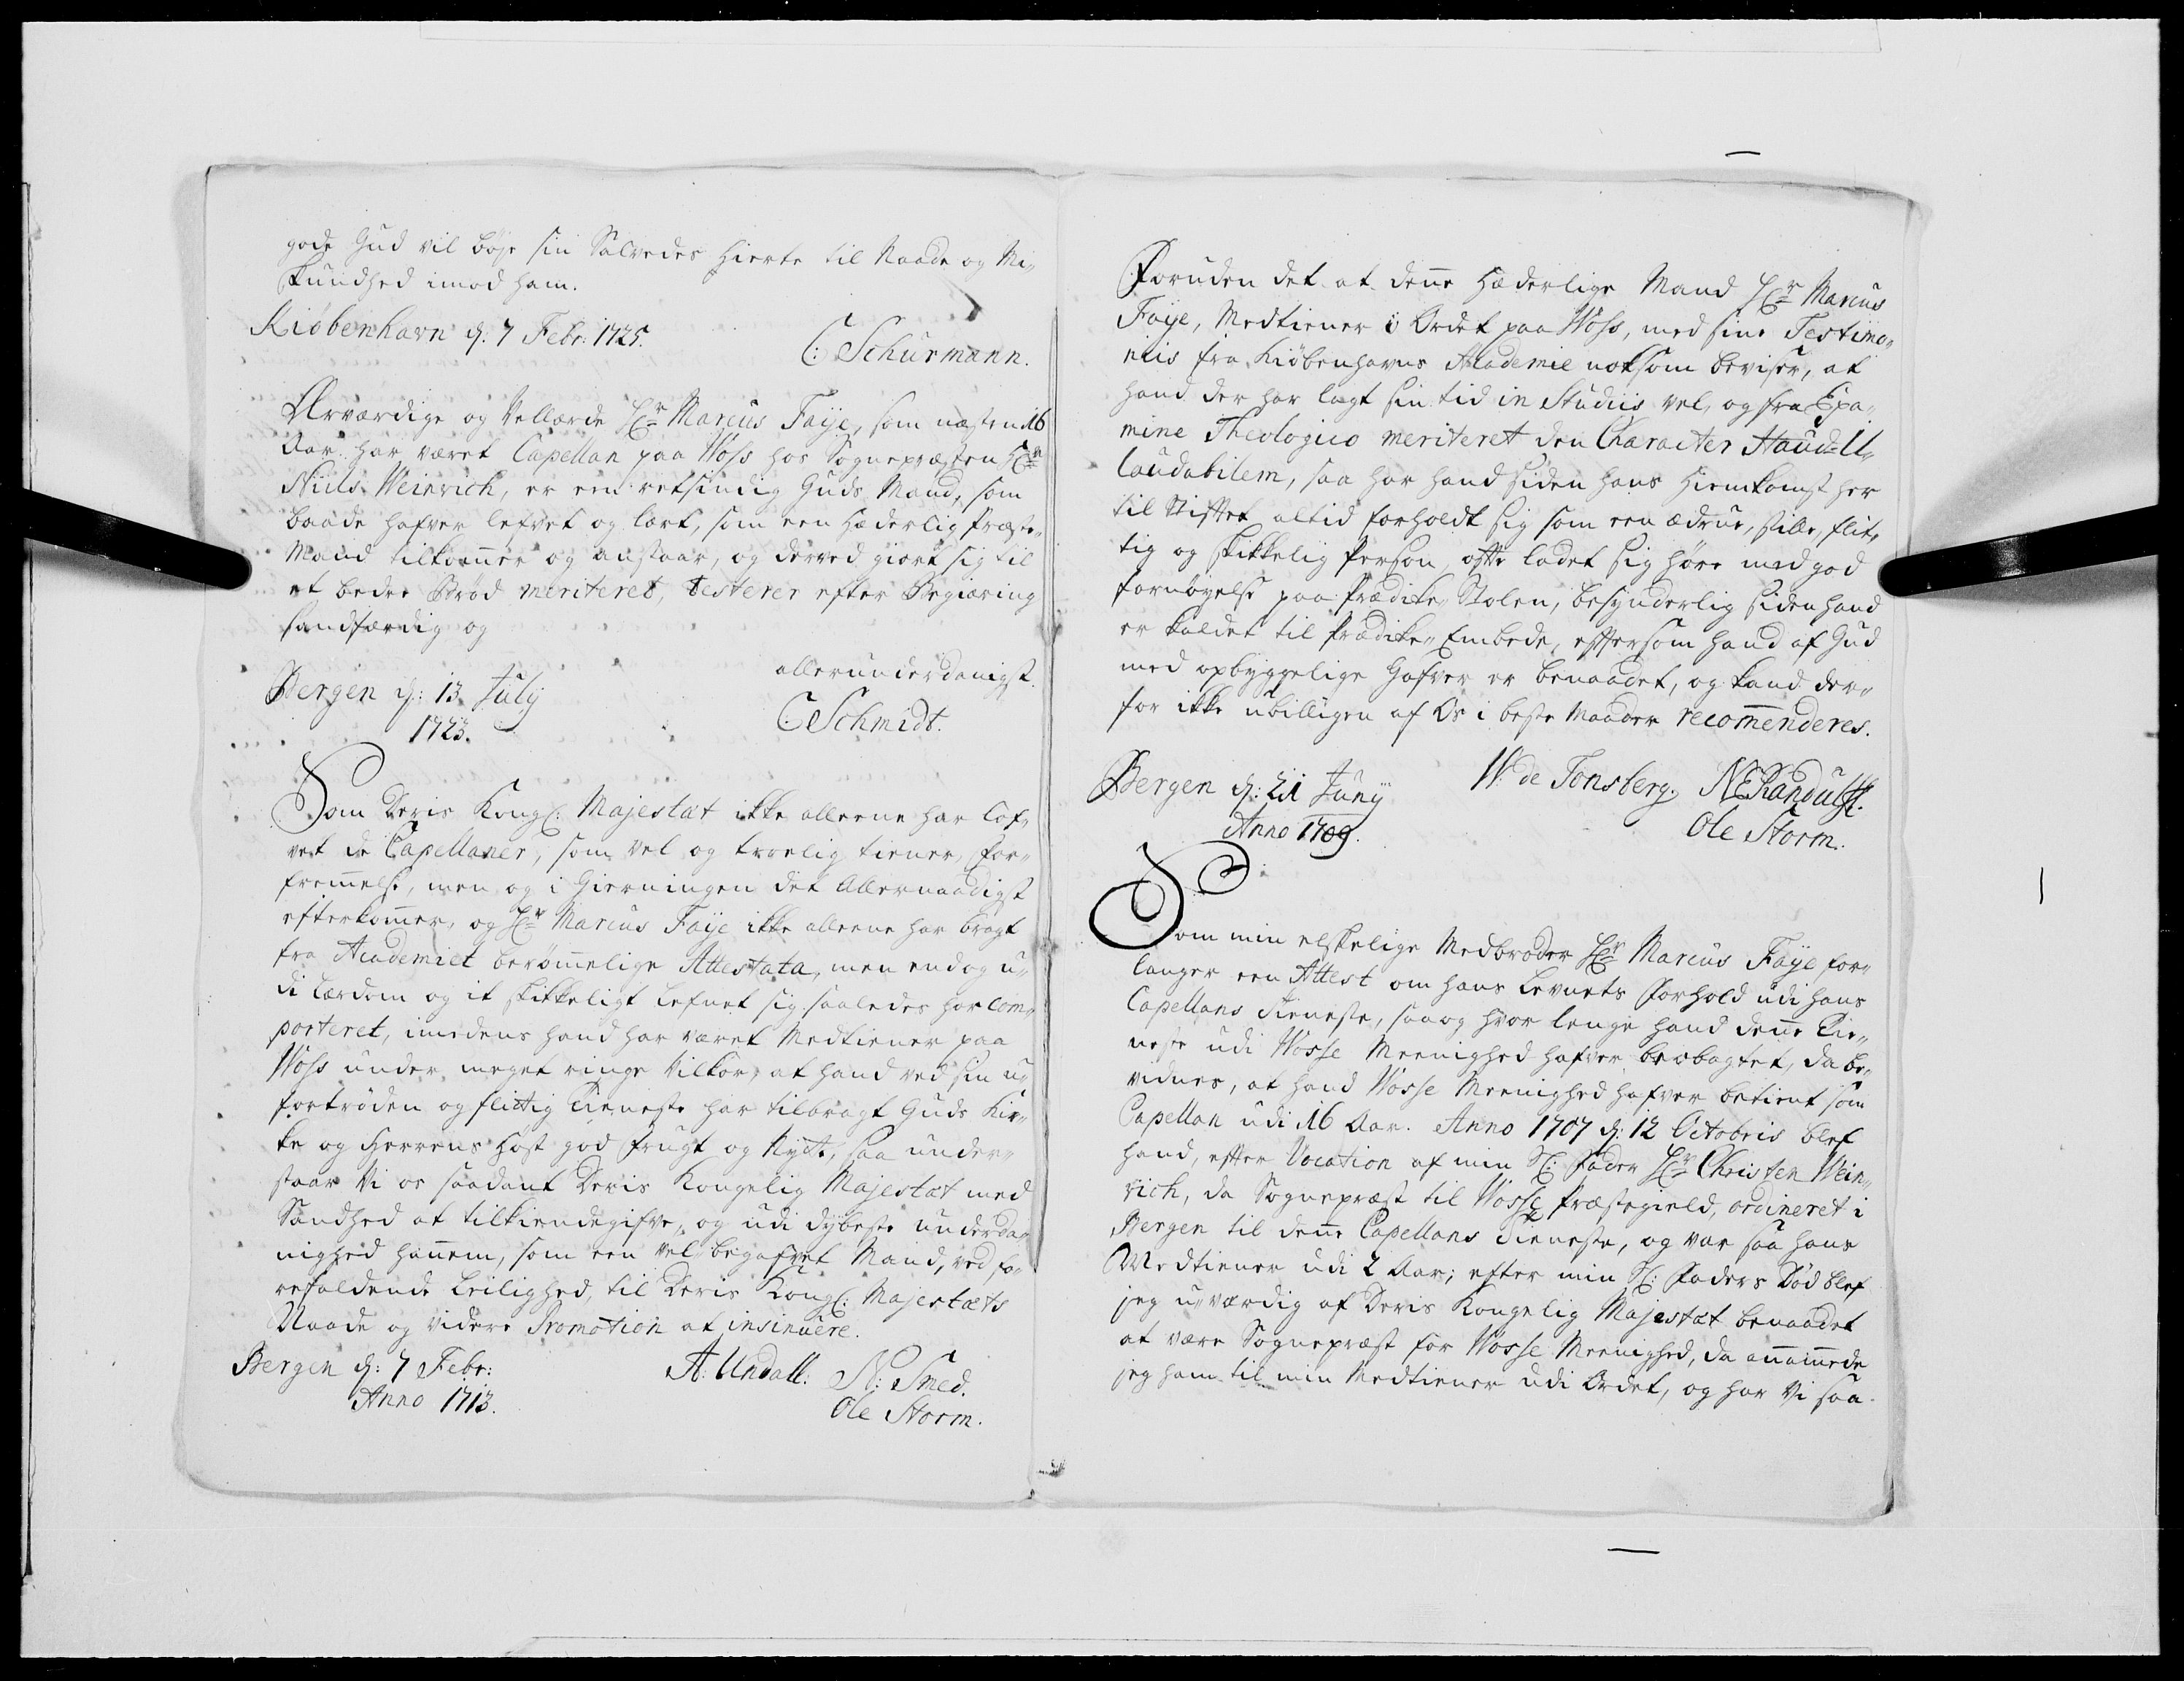 gode Gud vil böje sin Salvedes Hierte til Naade og Mi-
skundhed imod ham.
Kiöbenhavn d: 7 Febr: 1725.
C: Schurmann.
Ærværdige og Vellærde Hr Marcus Faÿe, som næsten 16
Aar har været Capellan paa Woss hos Sognepræsten Hr
Niels Weinrich, er een retsindig Guds Mand, som
baade hafver lefvet og lært, som een Hæderlig Præste-
Mand tilkommer og anstaar, og derved giort sig til
et bedre Bröd meriteret, testerer efter Begiæring
sandfærdig og
allerunderdanigst
Bergen d: 13 Julij
1723.
C: Schmidt.
Som Deris Kongl: Majestæt ikke alleene har lof-
vet de Capellaner, som vel og troelig tiener, for-
fremmelse, men og i Gierningen det Allernaadigst
efterkommer, og Hr Marcus Faÿe ikke alleene har bragt
fra Academiet berömmelige Attestata, men endog u-
di Lærdom og it skikkeligt Lefnet sig saaledes har com-
porteret, imedens hand har været Medtiener paa
Woss under meget ringe Vilkor, at hand ved sin u-
fortröden og flittig Tieneste har tilbragt Guds Kir-
ke og Herrens Höst god frugt og Nytte, saa under-
staar Vi os saadant Deris Kongelig Majestæt med
Sandhed at tilkiendegifve, og udi dybeste underda-
nighed hannem, som een vel begafvet Mand, ved fo-
refaldende Leilighed, til Deris Kongl: Majestæts
Naade og videre Promotion at insinuere.
Bergen d: 7 Febr:
Anno 1713.
A: Undall: N: Smed.
Ole Storm.
Foruden det at denne Hæderlige Mand Hr Marcus
Faÿe, Medtiener i Ordet paa Woss, med sine Testimo-
niis fra Kiöbenhavns Academie noksom beviser, at
hand der har lagt sin tid in Studiis vel, og fra Exa-
mine Theologico meriteret den Character Haud-Il-
laudabilem, saa har hand siden hans Hiemkomst her
til Stiftet altid forholdt sig som een ædrue, stille, flit-
tig og skikkelig Person, ofte ladet sig höre med god
fornöyelse paa Prædike-Stolen, besynderlig siden hand
er kaldet til Prædike-Embede, eftersom hand af Gud
med opbyggelige Gafver er benaadet, og kand der-
for ikke ubilligen af Os i beste Maader recommenderes.
Bergen d: 21 Junij
Anno 1709.
W: de Tonsberg. NERandulff.
Ole Storm.
Som min elskelige Medbroder Hr Marcus Faÿe for-
langer een Attest om hans Levnets Forhold udi hans
Capellans Tieneste, saa og hvor lenge hand denne Tie-
neste udi Wosse Meenighed hafver beobagtet, da be-
vidnes, at hand Wosse Meenighed hafver betient som
Capellan udi 16 Aar. Anno 1707 d: 12 Octobris blef
hand, efter Vocation af min Sl: Fader Hr Christen Wein-
rich, da Sognepræst til Wosse Præstegield, ordineret i
Bergen til denne Capellans Tieneste, og var saa hans
Medtiener udi 2 Aar; efter min Sl: Faders Död blef
jeg u-værdig af Deris Kongelig Majestæt benaadet
at være Sognepræst for Wosse Meenighed, da annammede
jeg ham til min Medtiener udi Ordet, og har Vi saa